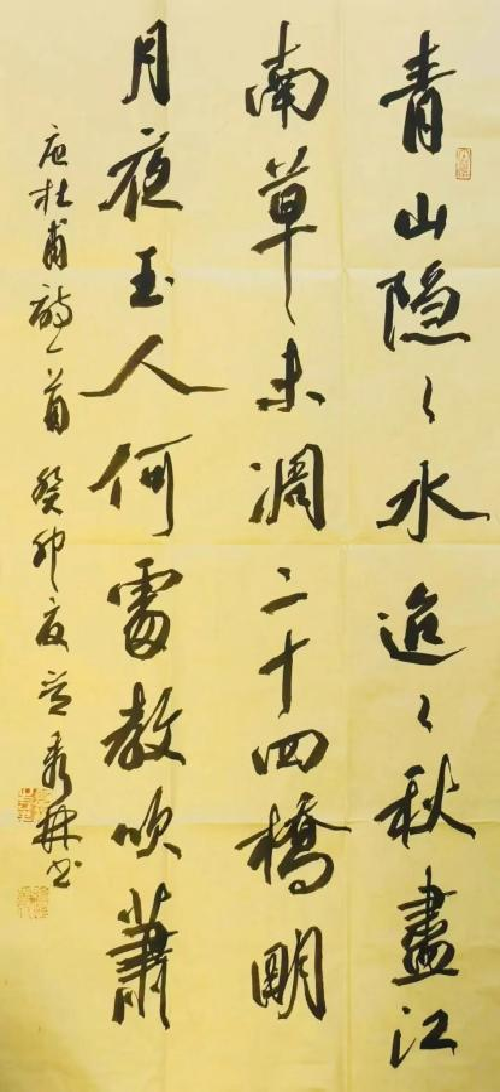 青山隐々水迢々秋盡江
南草未凋二十四橋明
月夜玉人何處教吹蕭
杜甫詩一首癸卯夏秀林书